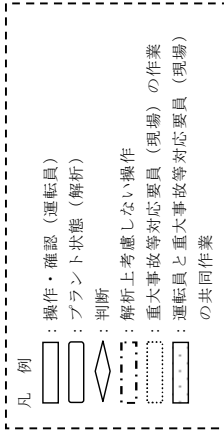 凡　例
：操作・確認（運転員）
：プラント状態（解析）
：判断
：解析上考慮しない操作
：重大事故等対応要員（現場）の作業
：運転員と重大事故等対応要員（現場）
の共同作業